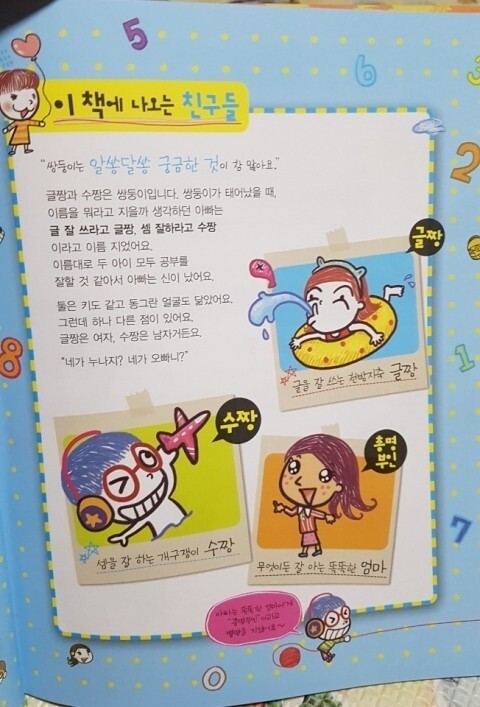 5
6
3
이 책에 나오는 친구들
2
"쌍둥이는 알쏭달쏭 궁금한 것이 참 많아요."
글짱과 수짱은 쌍둥이입니다. 쌍둥이가 태어났을 때,
이름을 뭐라고 지을까 생각하던 아빠는
글 잘 쓰라고 글짱, 셈 잘하라고 수짱
이라고 이름 지었어요.
이름대로 두 아이 모두 공부를
잘할 것 같아서 아빠는 신이 났어요.
둘은 키도 같고 동그란 얼굴도 닮았어요.
그런데 하나 다른 점이 있어요.
글짱은 여자, 수짱은 남자거든요.
"네가 누나지? 네가 오빠니?"
글짱
글을 잘 쓰는 천방지축 글짱
8
1
수짱
셈을 잘 하는 개구쟁이 수짱
총명
부인
무엇이든 잘 아는 똑똑한 엄마
7
아빠는 똑똑한 엄마에게
"총명부인"이라고
별명을 지었어요~
0